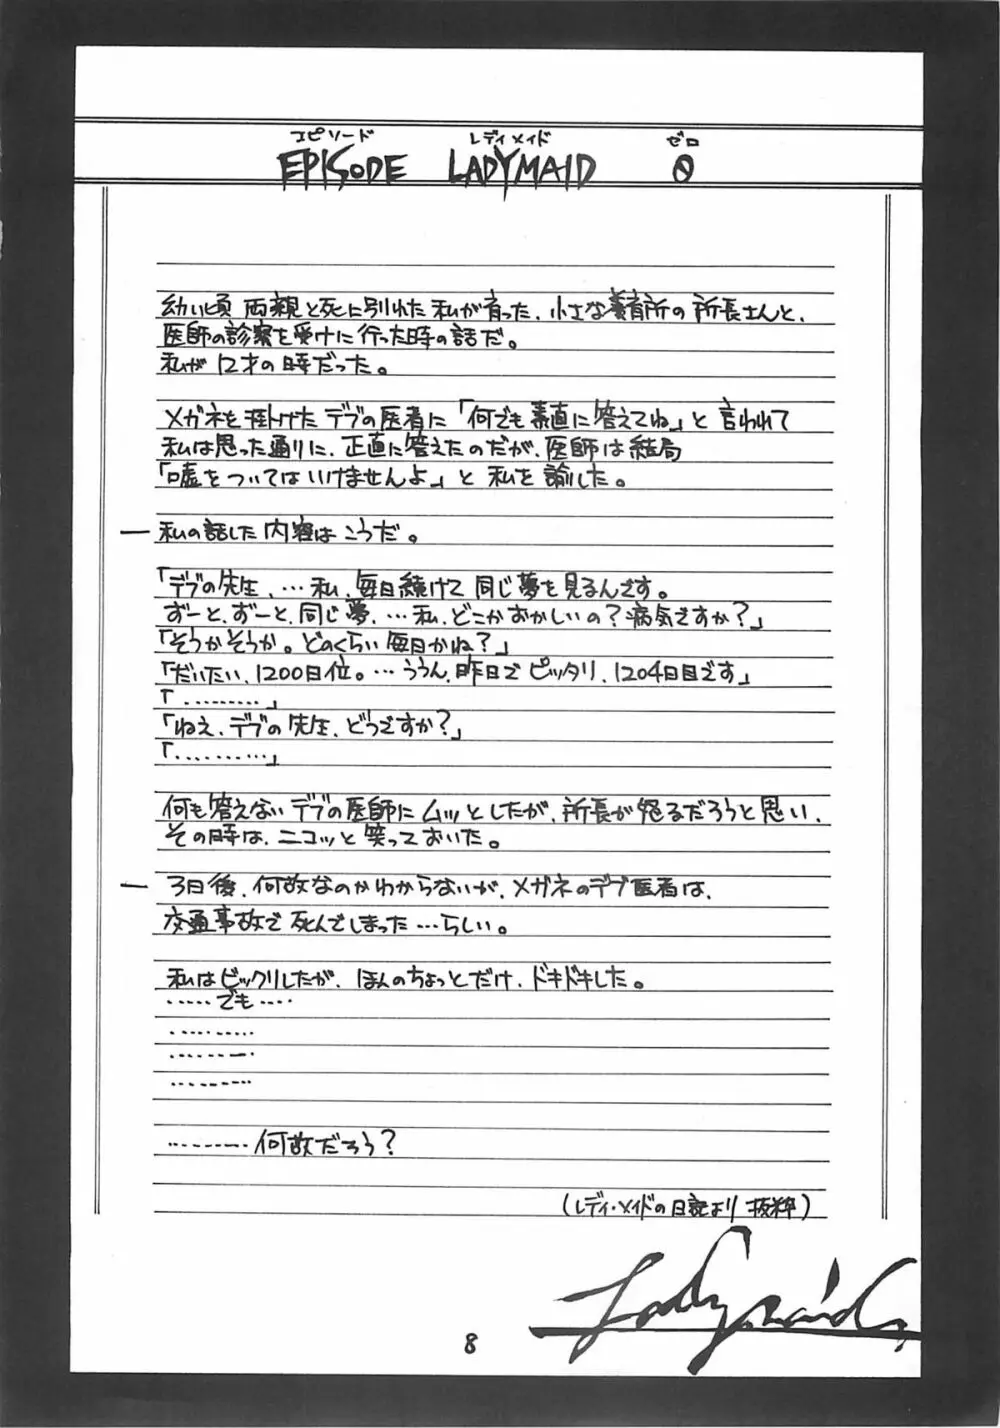 エピソード レディメイド ゼロ
EPISODE LADYMAID 0
幼い頃 両親と死に別れた 私が育った、小さな養育所の 所長さんと、
医師の診察を受けに 行った時の話だ。
私が 12才の時だった。
メガネを掛けた デブの医者に「何でも素直に答えてね」と 言われて
私は思った通りに、正直に答えたのだが、医師は結局
「嘘をついてはいけませんよ」と 私を諭した。
― 私の話した内容は こうだ。
「デブの先生、…私、毎日続けて 同じ夢を見るんです。
ずーと、ずーと、同じ夢、…私、どこかおかしいの?病気ですか?」
「そうかそうか。どのくらい 毎日かね?」
「だいたい、1200日位。…ううん、昨日で ピッタリ、1204日目です」
「………」
「ねえ、デブの先生、どうですか?」
「…………」
何も答えない デブの医師に ムッとしたが、所長が怒るだろうと思い、
その時は、ニコッと笑っておいた。
― 3日後、何故なのかわからないが、メガネのデブ医者は、
交通事故で死んでしまった …らしい。
私はビックリしたが、ほんのちょっとだけ、ドキドキした。
……でも……
…………
…………
…………
…………何故だろう?
(レディ・メイドの日記より 抜粋)
Ladymaid
8